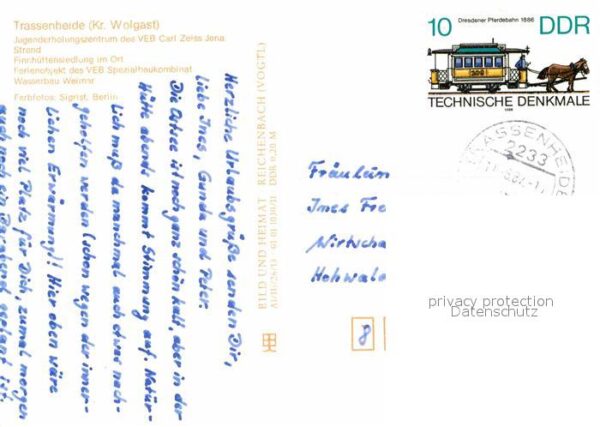 Trassenheide (Kr. Wolgast)
Jugenderholungszentrum des VEB Carl Zeiss Jena
Strand
Finnhüttensiedlung im Ort
Ferienobjekt des VEB Spezialbaukombinat
Wasserbau Weimar
Farbfotos: Sigrist, Berlin
BILD UND HEIMAT REICHENBACH (VOGTL)
DDR 0,20 M
Herzliche Urlaubsgrüße senden Dir,
liebe Ines, Gunda und Peter.
Die Ostsee ist noch ganz schön kalt, aber in der
Hütte abends kommt Stimmung auf. Natür-
lich muß da manchmal auch etwas nach-
geholfen werden (schon wegen der inner-
lichen Erwärmung)! Hier oben wäre
noch viel Platz für Dich, zumal morgen
auch noch ein geplant ist.
10 Dresdener Pferdebahn 1886 DDR
209
TECHNISCHE DENKMALE
TRASSENHEIDE
2233
Fräulein
Ines Fre
Wirtscha
Hohwal
8
privacy protection
Datenschutz